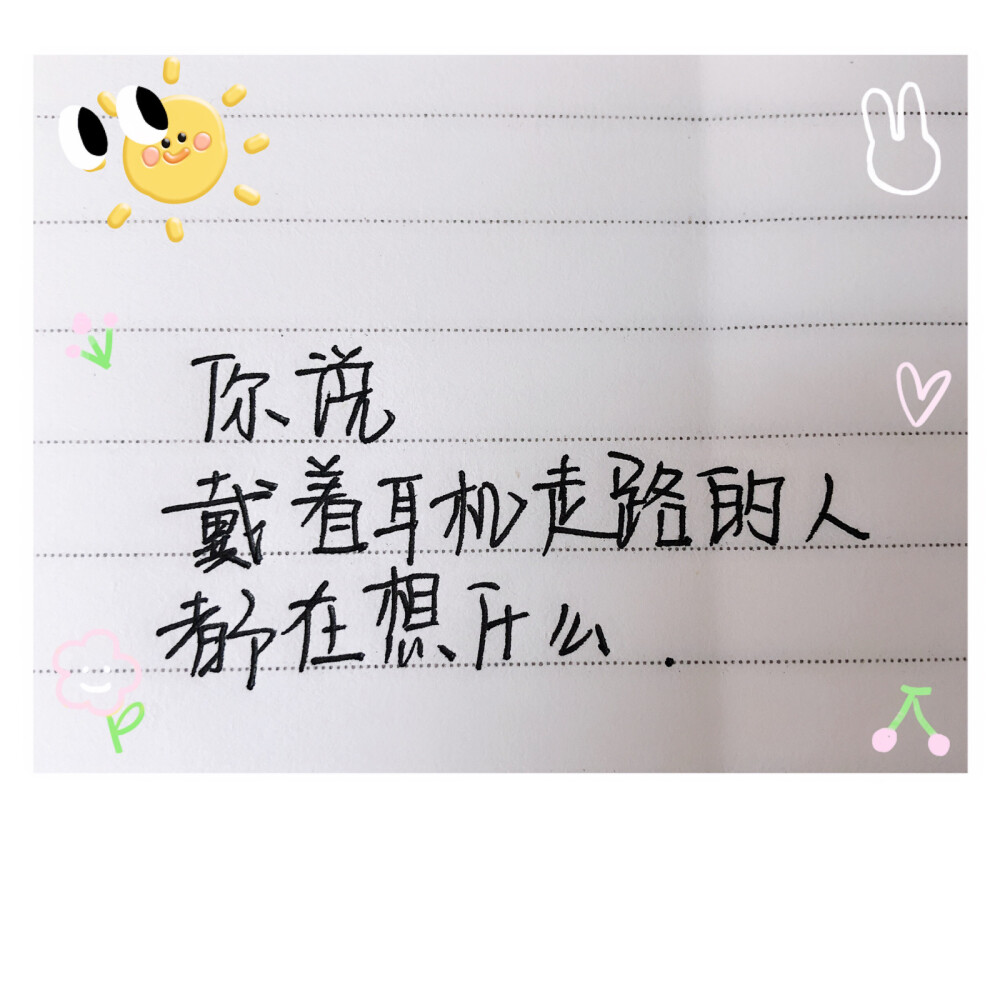 你说
戴着耳机走路的人
都在想什么.